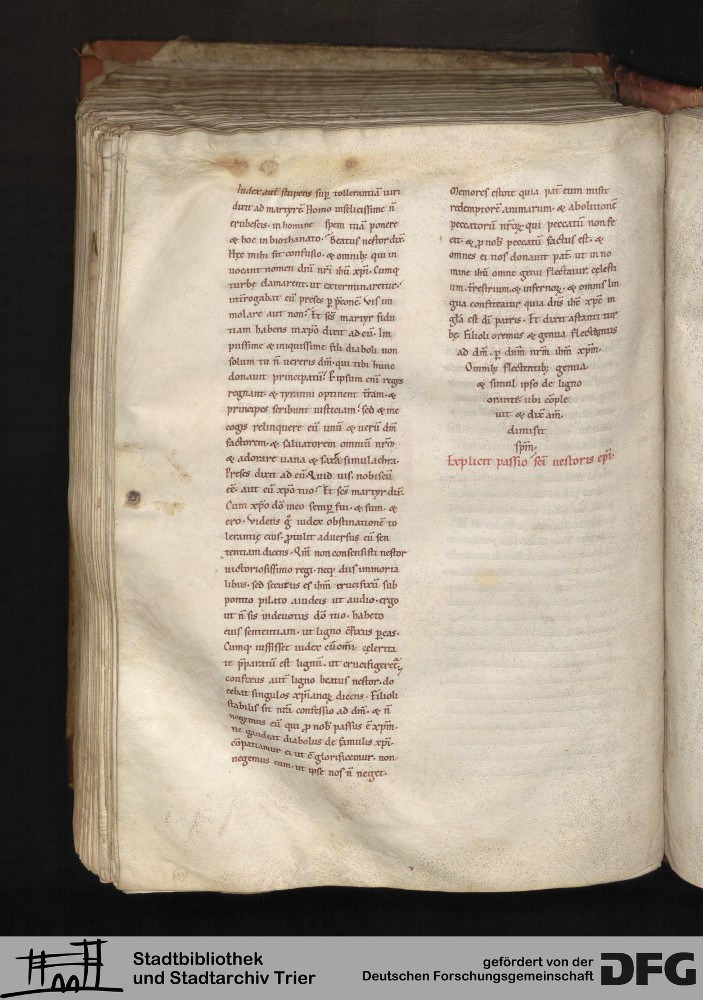 Iudex aut̄ stupens sup̄ tollerantia uiri
dixit ad martyrē. Homo infelicissime n̄
erubescis. in homine spem tuā ponere
& hoc in biothanato. Beatus nestor dix̄.
Hęc mihi sit confusio. & omnibꝰ qui in
uocant nomen dn̄i nr̄i ihū xp̄i. Cumq
turbę clamarent. ut exterminaretur.
int̄rogabat eū preses p̱ p̄conē. Vis im
molare aut non? Et sc̄s martyr fidu
tiam habens in xp̄o dixit ad eū. Im
piissime & iniquissime fili diaboli. non
solum tu n̄ uereris dm̄. qui tibi hunc
donauit principatū? Et ipsum eni reges
regnant. & tyranni optinent t̄ram. &
principes scribunt iusticiam? sed & me
cogis relinquere eū unū & uerū dm̄
factorem. & saluatorem omniū nr̄m
& adorare uana & saxa simulachra.
Preses dixit ad eū. Quid uis. nobiscū
ēē. aut cū xp̄o tuo? Et sc̄s martyr dix̄.
Cum xp̄o dō meo semp̱ fui. & sum. &
ero. Videns g̊ iudex obstinationē to
lerantię eius. ꝓtulit aduersus eū sen
tentiam dicens. Qm̄ non consensisti nestor
uictoriosissimo regi. neq diis inmorta
libus. sed secutus es ihm̄ crucifixū sub
pontio pilato a iudeis ut audio. ergo
ut n̄ sis indeuotus dō tuo. habeto
eius sententiam. ut ligno c̄fixus p̱eas.
Cumq iussisset iudex cū om̄i celerita
te p̄paratū est lignū. ut crucifigeret̄.
confixus aut̄ ligno beatus nestor. do
cebat singulos xp̄ianoꝝ dicens. Filioli
stabilis sit nr̄a confessio ad dm̄. & n̄
negemus eū qui ꝓ nob̄ passus ē xp̄m.
ne gaudeat diabolus de famulis xp̄i.
cōpatiamur ei ut & glorificemur. non
negemus eum. ut ipse nos n̄ neget.
Memores estote quia pat̄ eum misit
redemptorē animarum. & abolitionē
peccatorū nr̄oꝝ qui peccatū non fe
cit. & ꝓ nob̄ peccatū factus est. &
omnes ei nos donauit pat̄. ut in no
mine ihū omne genu flectatur cęlesti
um. t̄restrium. & infernoꝝ. & omnis lin
gua confiteatur quia dn̄s ihc̄ xp̄c in
gl̄a est dī patris. Et dixit astanti tur
bę. Filioli oremus & genua flectemus
ad dm̄. p̱ dnm̄ nrm̄ ihm̄ xpm̄.
Omnibꝰ flectentibꝰ genua
& simul ipso de ligno
orante. ubi cōple
uit & dix̄ am̄.
dimisit
sp̄m.
Explicit passio sc̄i nestoris ep̄i.
Stadtbibliothek
und Stadtarchiv Trier
gefördert von der
Deutschen Forschungsgemeinschaft
DFG